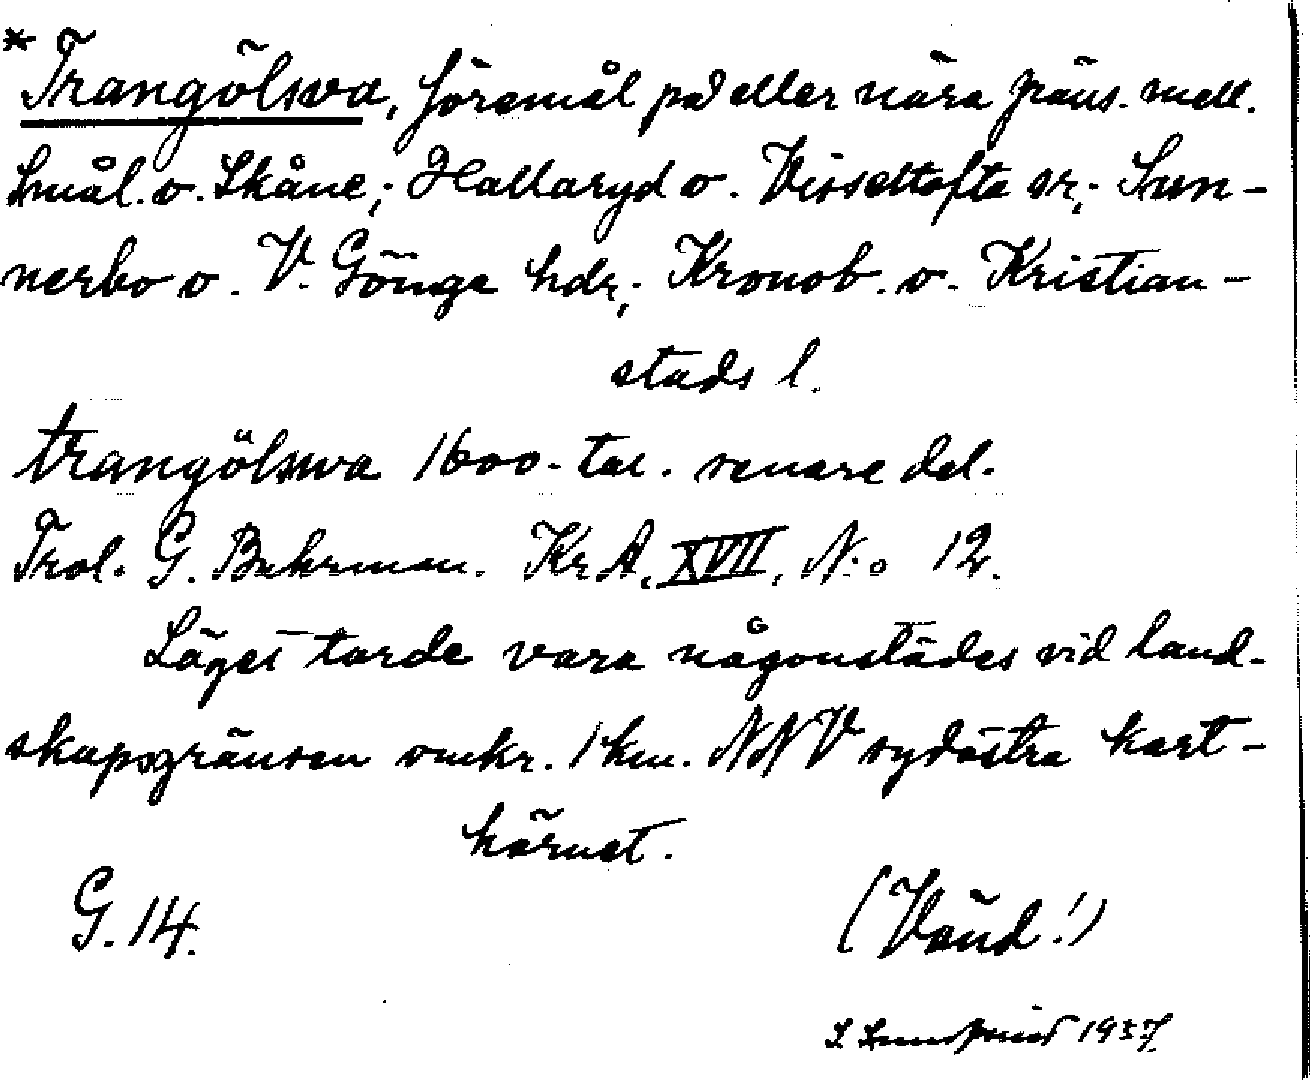 *Trangölswa, föremål på eller nära gräns. mell.
Smål. o. Skåne; Hallaryd o. Visseltofta sr; Sun-
nerbo o. V. Göinge hdr; Kronob. o. Kristian-
stads l.
trangölswa 1600-tal. senare del.
Trol. G. Buhrman. Kr A, XVII, N:o 12.
Läget torde vara någonstädes vid land-
skapsgränsen omkr. 1 km. NNV sydöstra kart-
hörnet.
G. 14. (Vänd!)
1937